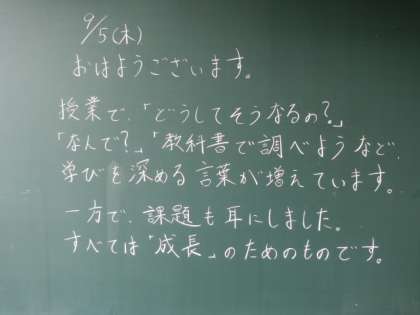 9/5(木)
おはようございます。
授業で、「どうしてそうなるの?」
「なんで?」「教科書で調べようなど、
学びを深める言葉が増えています。
一方で、課題も耳にしました。
すべては「成長」のためのものです。